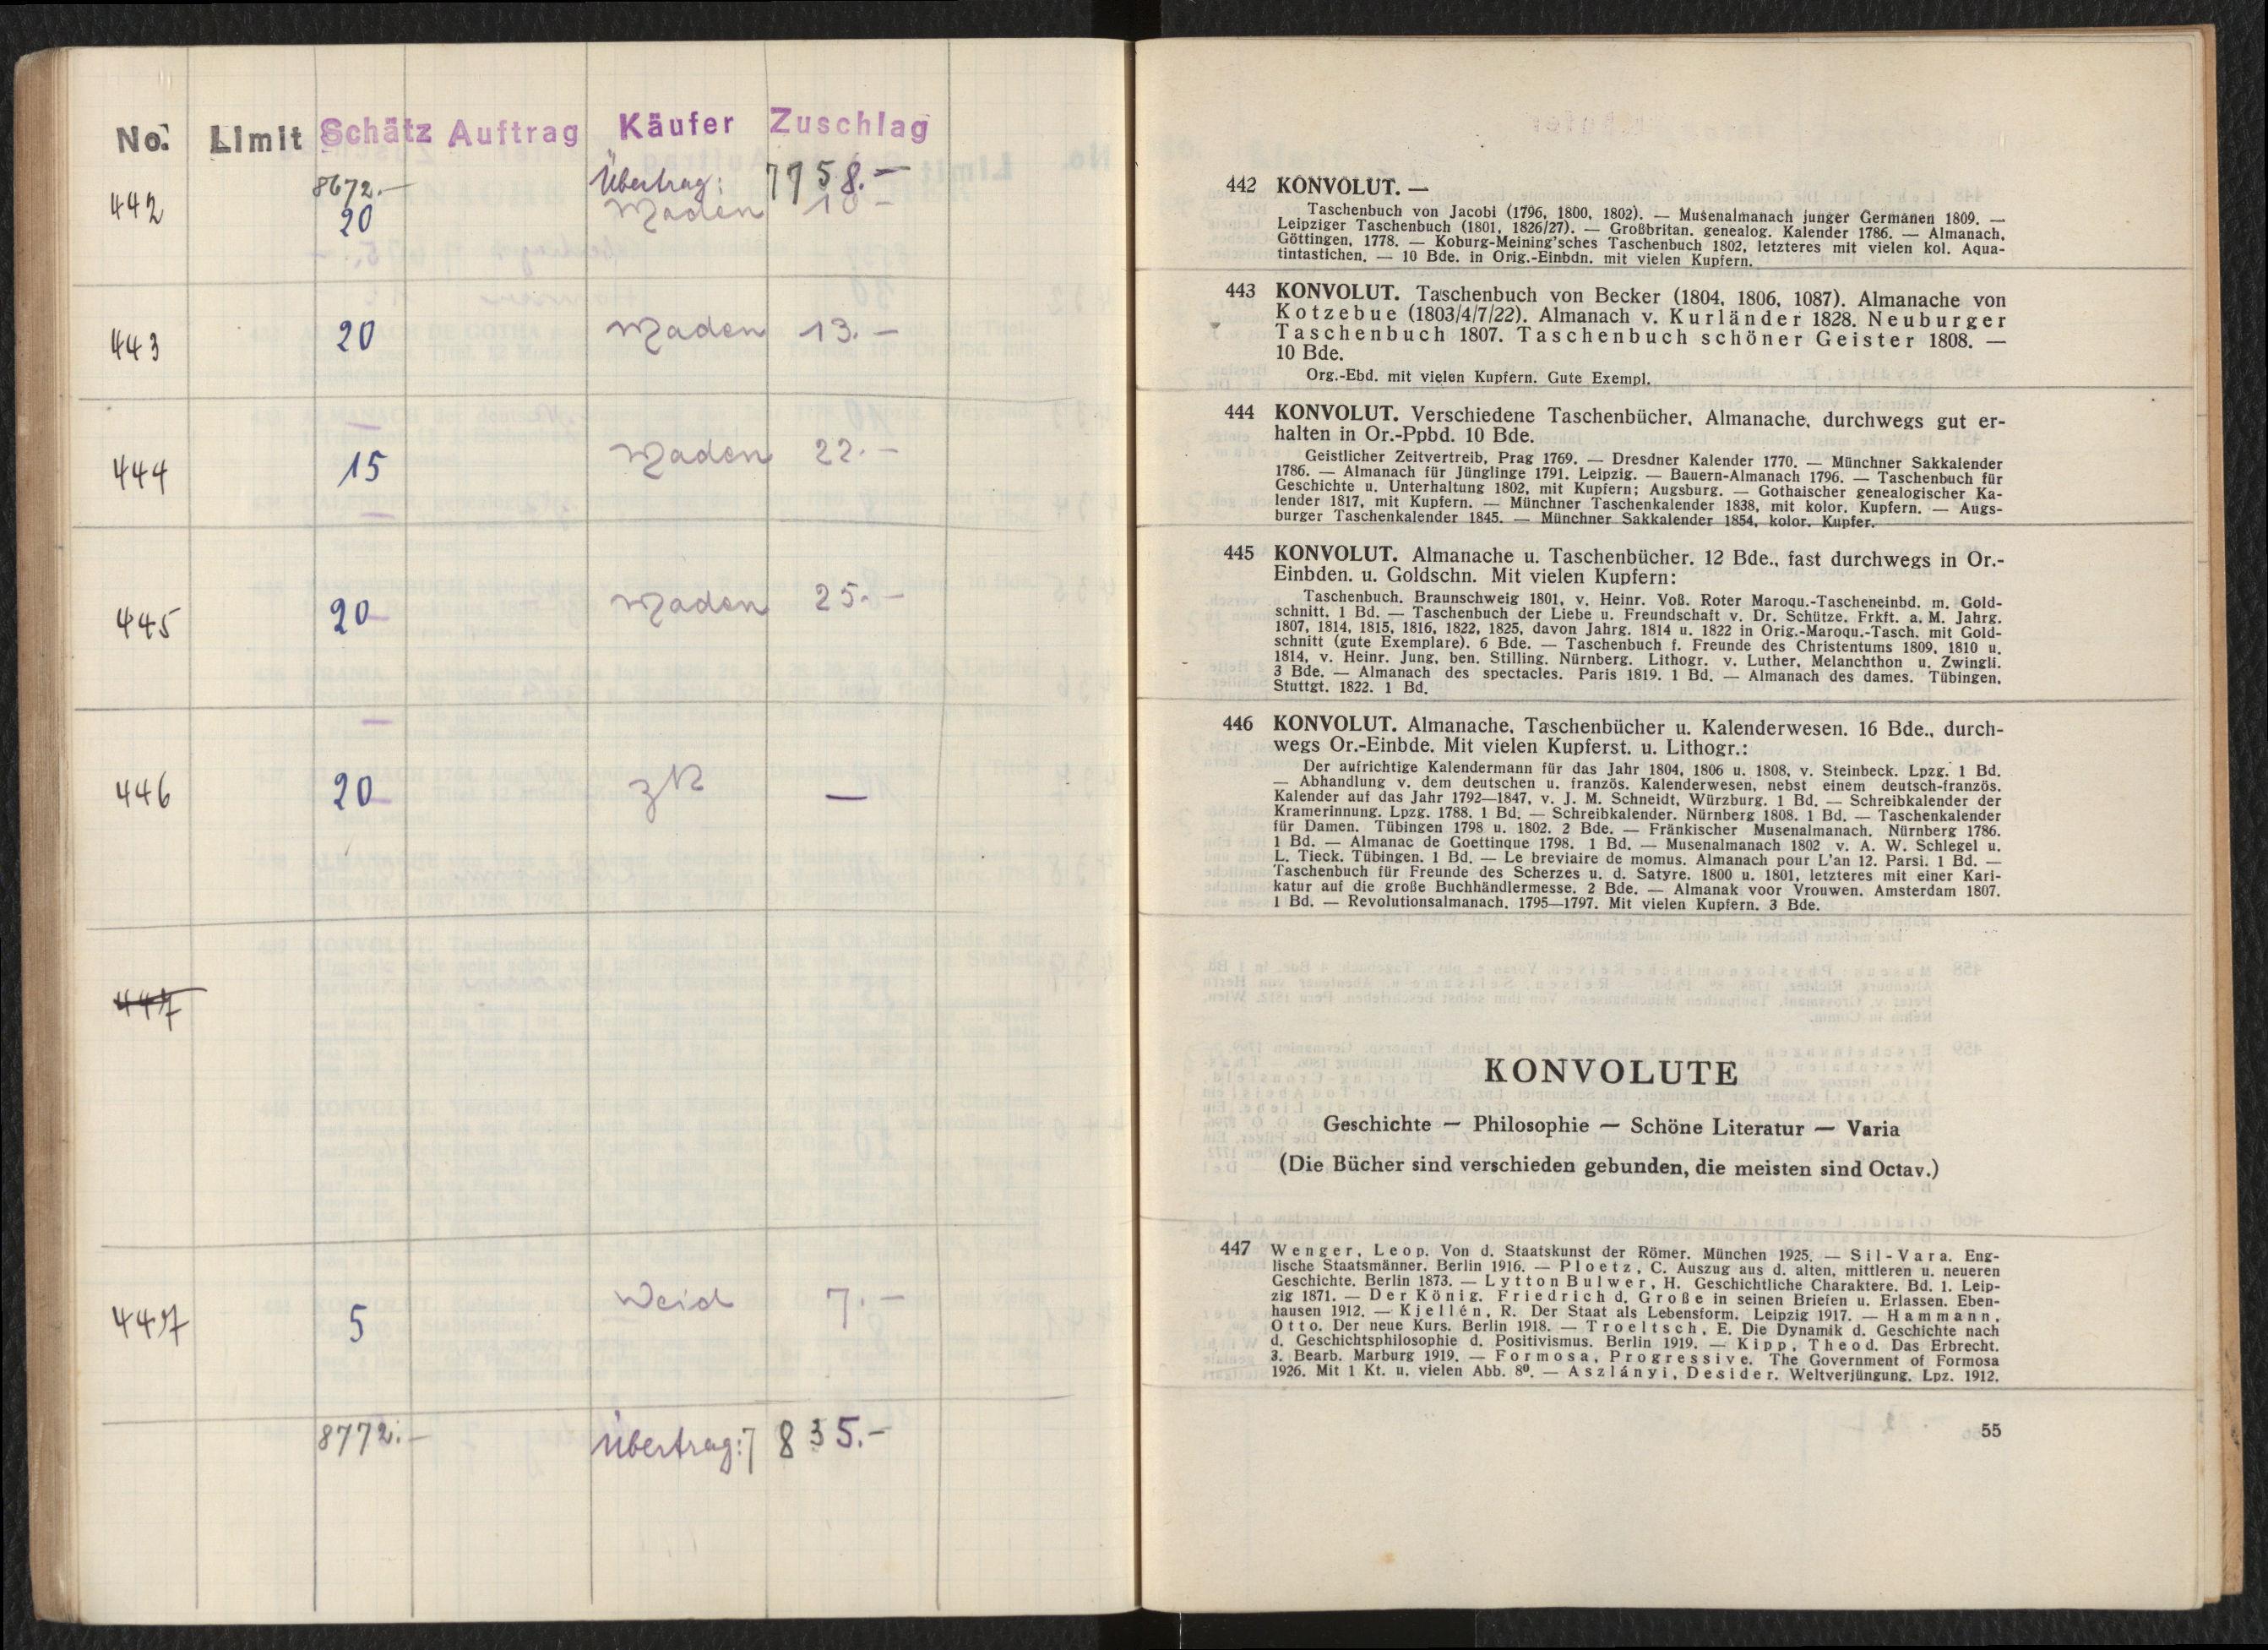 No. Limit Schätz Auftrag Käufer Zuschlag
8672.— Übertrag: 7758.—
442 20 Maden 10 —
443 20 Maden 13.—
444 15 Maden 22.—
445 20 Maden 25.—
446 20 zR —
447
447 5 Weid 7.—
8772.— Übertrag: 7835.—
442 KONVOLUT. —
Taschenbuch von Jacobi (1796, 1800, 1802). — Musenalmanach junger Germanen 1809. —
Leipziger Taschenbuch (1801, 1826/27). — Großbritan. genealog. Kalender 1786. — Almanach,
Göttingen, 1778. — Koburg-Meining'sches Taschenbuch 1802, letzteres mit vielen kol. Aqua-
tintastichen. — 10 Bde. in Orig.-Einbdn. mit vielen Kupfern.
443 KONVOLUT. Taschenbuch von Becker (1804, 1806, 1087). Almanache von
Kotzebue (1803/4/7/22). Almanach v. Kurländer 1828. Neuburger
Taschenbuch 1807. Taschenbuch schöner Geister 1808. —
10 Bde.
Org.-Ebd. mit vielen Kupfern. Gute Exempl.
444 KONVOLUT. Verschiedene Taschenbücher, Almanache, durchwegs gut er-
halten in Or.-Ppbd. 10 Bde.
Geistlicher Zeitvertreib, Prag 1769. — Dresdner Kalender 1770. — Münchner Sakkalender
1786. — Almanach für Jünglinge 1791. Leipzig. — Bauern-Almanach 1796. — Taschenbuch für
Geschichte u. Unterhaltung 1802, mit Kupfern; Augsburg. — Gothaischer genealogischer Ka-
lender 1817, mit Kupfern. — Münchner Taschenkalender 1838, mit kolor. Kupfern. — Augs-
burger Taschenkalender 1845. — Münchner Sakkalender 1854, kolor. Kupfer.
445 KONVOLUT. Almanache u. Taschenbücher. 12 Bde., fast durchwegs in Or.-
Einbden. u. Goldschn. Mit vielen Kupfern:
Taschenbuch. Braunschweig 1801, v. Heinr. Voß. Roter Maroqu.-Tascheneinbd. m. Gold-
schnitt. 1 Bd. — Taschenbuch der Liebe u. Freundschaft v. Dr. Schütze. Frkft. a. M. Jahrg.
1807, 1814, 1815, 1816, 1822, 1825, davon Jahrg. 1814 u. 1822 in Orig.-Maroqu.-Tasch. mit Gold-
schnitt (gute Exemplare). 6 Bde. — Taschenbuch f. Freunde des Christentums 1809, 1810 u.
1814, v. Heinr. Jung, ben. Stilling. Nürnberg. Lithogr. v. Luther, Melanchthon u. Zwingli.
3 Bde. — Almanach des spectacles. Paris 1819. 1 Bd. — Almanach des dames. Tübingen,
Stuttgt. 1822. 1 Bd.
446 KONVOLUT. Almanache, Taschenbücher u. Kalenderwesen. 16 Bde., durch-
wegs Or.-Einbde. Mit vielen Kupferst. u. Lithogr.:
Der aufrichtige Kalendermann für das Jahr 1804, 1806 u. 1808, v. Steinbeck. Lpzg. 1 Bd.
— Abhandlung v. dem deutschen u. französ. Kalenderwesen, nebst einem deutsch-französ.
Kalender auf das Jahr 1792—1847, v. J. M. Schneidt, Würzburg. 1 Bd. — Schreibkalender der
Kramerinnung. Lpzg. 1788. 1 Bd. — Schreibkalender. Nürnberg 1808. 1 Bd. — Taschenkalender
für Damen. Tübingen 1798 u. 1802. 2 Bde. — Fränkischer Musenalmanach. Nürnberg 1786.
1 Bd. — Almanac de Goettinque 1798. 1 Bd. — Musenalmanach 1802 v. A. W. Schlegel u.
L. Tieck. Tübingen. 1 Bd. — Le breviaire de momus. Almanach pour L'an 12. Parsi. 1 Bd. —
Taschenbuch für Freunde des Scherzes u. d. Satyre. 1800 u. 1801, letzteres mit einer Kari-
katur auf die große Buchhändlermesse. 2 Bde. — Almanak voor Vrouwen. Amsterdam 1807.
1 Bd. — Revolutionsalmanach. 1795—1797. Mit vielen Kupfern. 3 Bde.
KONVOLUTE
Geschichte — Philosophie — Schöne Literatur — Varia
(Die Bücher sind verschieden gebunden, die meisten sind Octav.)
447 Wenger, Leop. Von d. Staatskunst der Römer. München 1925. — Sil-Vara. Eng-
lische Staatsmänner. Berlin 1916. — Ploetz, C. Auszug aus d. alten, mittleren u. neueren
Geschichte. Berlin 1873. — Lytton Bulwer, H. Geschichtliche Charaktere. Bd. 1. Leip-
zig 1871. — Der König. Friedrich d. Große in seinen Briefen u. Erlassen. Eben-
hausen 1912. — Kjellén, R. Der Staat als Lebensform. Leipzig 1917. — Hammann,
Otto. Der neue Kurs. Berlin 1918. — Troeltsch, E. Die Dynamik d. Geschichte nach
d. Geschichtsphilosophie d. Positivismus. Berlin 1919. — Kipp, Theod. Das Erbrecht.
3. Bearb. Marburg 1919. — Formosa, Progressive. The Government of Formosa
1926. Mit 1 Kt. u. vielen Abb. 8⁰. — Aszlányi, Desider. Weltverjüngung. Lpz. 1912.
55